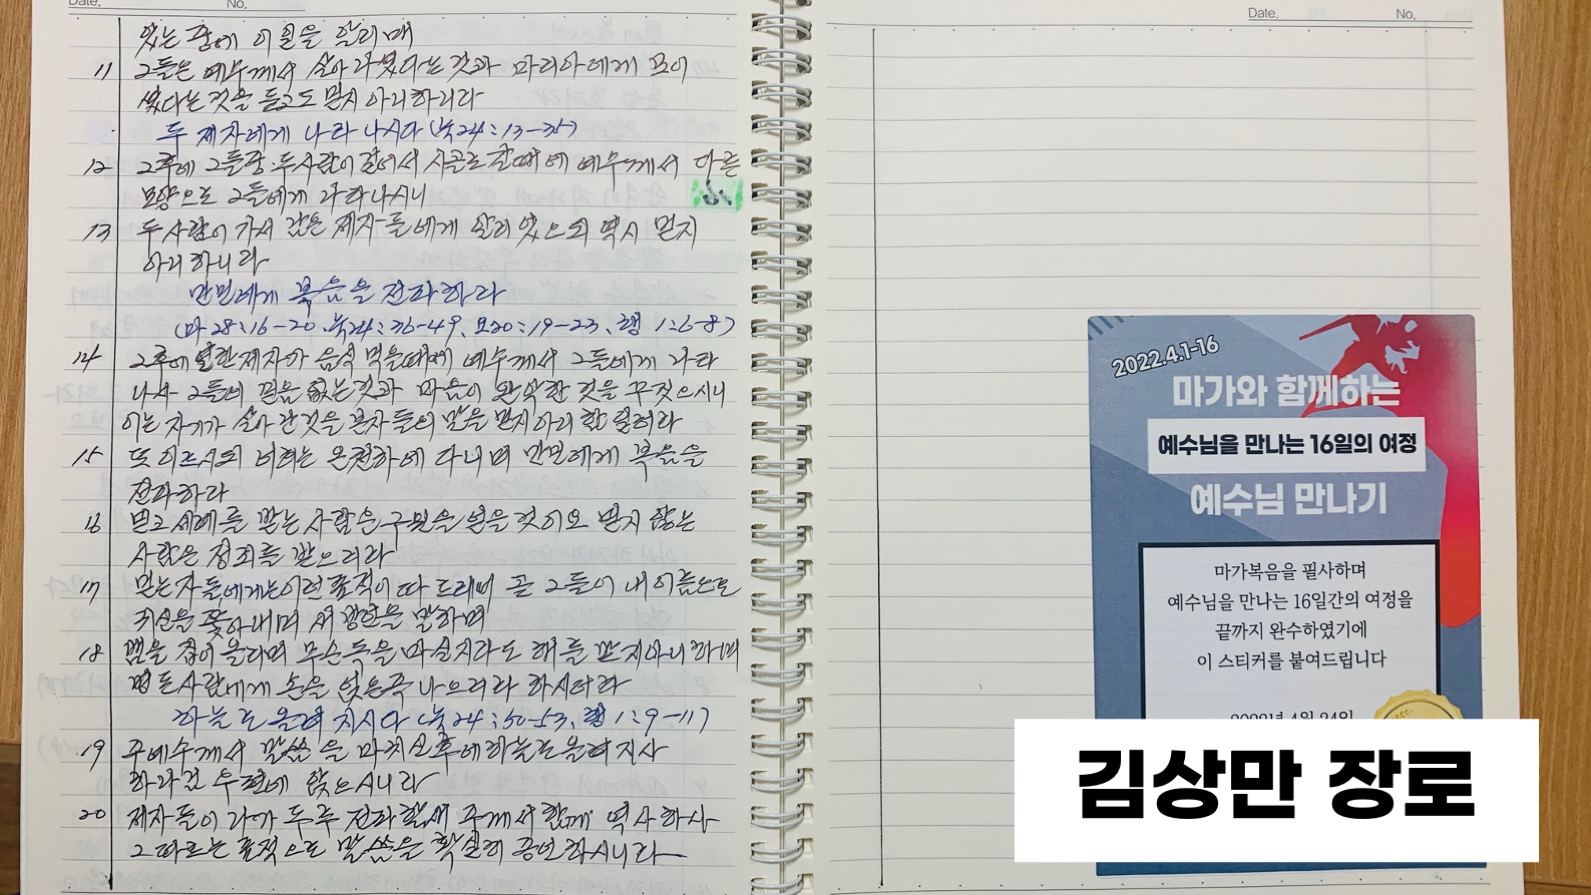 Date. No.
있는 중에 이 일을 알리매
11 그들은 예수께서 살아나셨다는 것과 마리아에게 보이
셨다는 것을 듣고도 믿지 아니하니라
두 제자에게 나타나시다 (눅24:13-35)
12 그후에 그들중 두사람이 걸어서 시골로 갈때에 예수께서 다른
모양으로 그들에게 나타나시니
13 두 사람이 가서 남은 제자들에게 알리었으되 역시 믿지
아니하니라
만민에게 복음을 전파하라
(마28:16-20, 눅24:36-49, 요20:19-23, 행 1:6-8)
14 그후에 열한 제자가 음식 먹을때에 예수께서 그들에게 나타
나사 그들의 믿음 없는 것과 마음이 완악한 것을 꾸짖으시니
이는 자기가 살아 난 것을 본자들의 말을 믿지 아니함일러라
15 또 이르시되 너희는 온천하에 다니며 만민에게 복음을
전파하라
16 믿고 세례를 받는 사람은 구원을 얻을 것이요 믿지 않는
사람은 정죄를 받으리라
17 믿는자들에게는 이런 표적이 따르리니 곧 그들이 내 이름으로
귀신을 쫓아내며 새 방언을 말하며
18 뱀을 집어 올리며 무슨 독을 마실지라도 해를 받지아니하며
병든 사람에게 손을 얹은즉 나으리라 하시더라
하늘로 올려 지시다 (눅24:50-53, 행 1:9-11)
19 주예수께서 말씀을 마치신 후에 하늘로 올려지사
하나님 우편에 앉으시니라
20 제자들이 나가 두루 전파할새 주께서 함께 역사하사
그 따르는 표적으로 말씀을 확실히 증언하시니라
Date. No.
2022.4.1-16
마가와 함께하는
예수님을 만나는 16일의 여정
예수님 만나기
마가복음을 필사하며
예수님을 만나는 16일간의 여정을
끝까지 완수하였기에
이 스티커를 붙여드립니다
2022년 4월 24일
김상만 장로